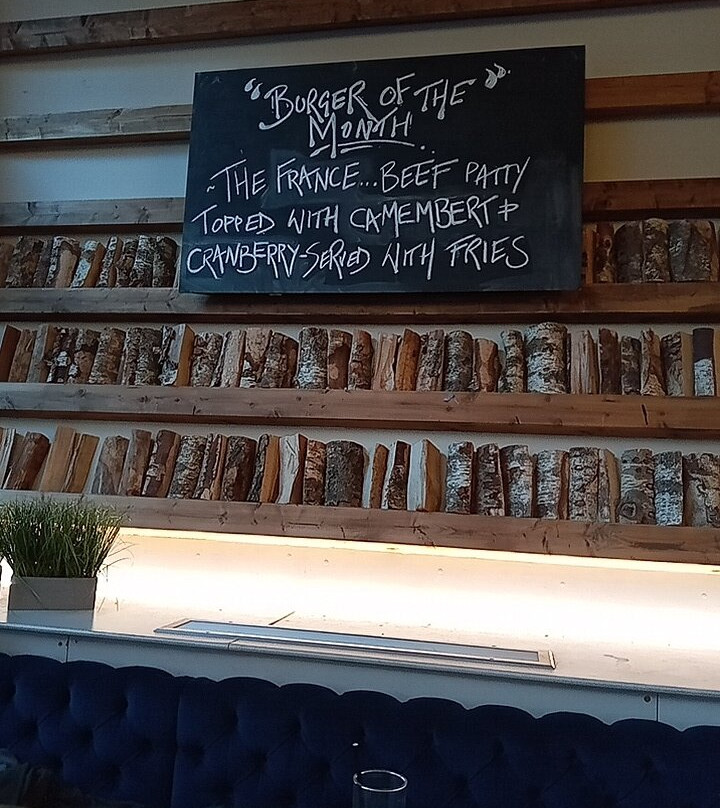 "BURGER OF THE"
MONTH..
~THE FRANCE...BEEF PATTY
TOPPED WITH CAMEMBERT &
CRANBERRY-SERVED WITH FRIES